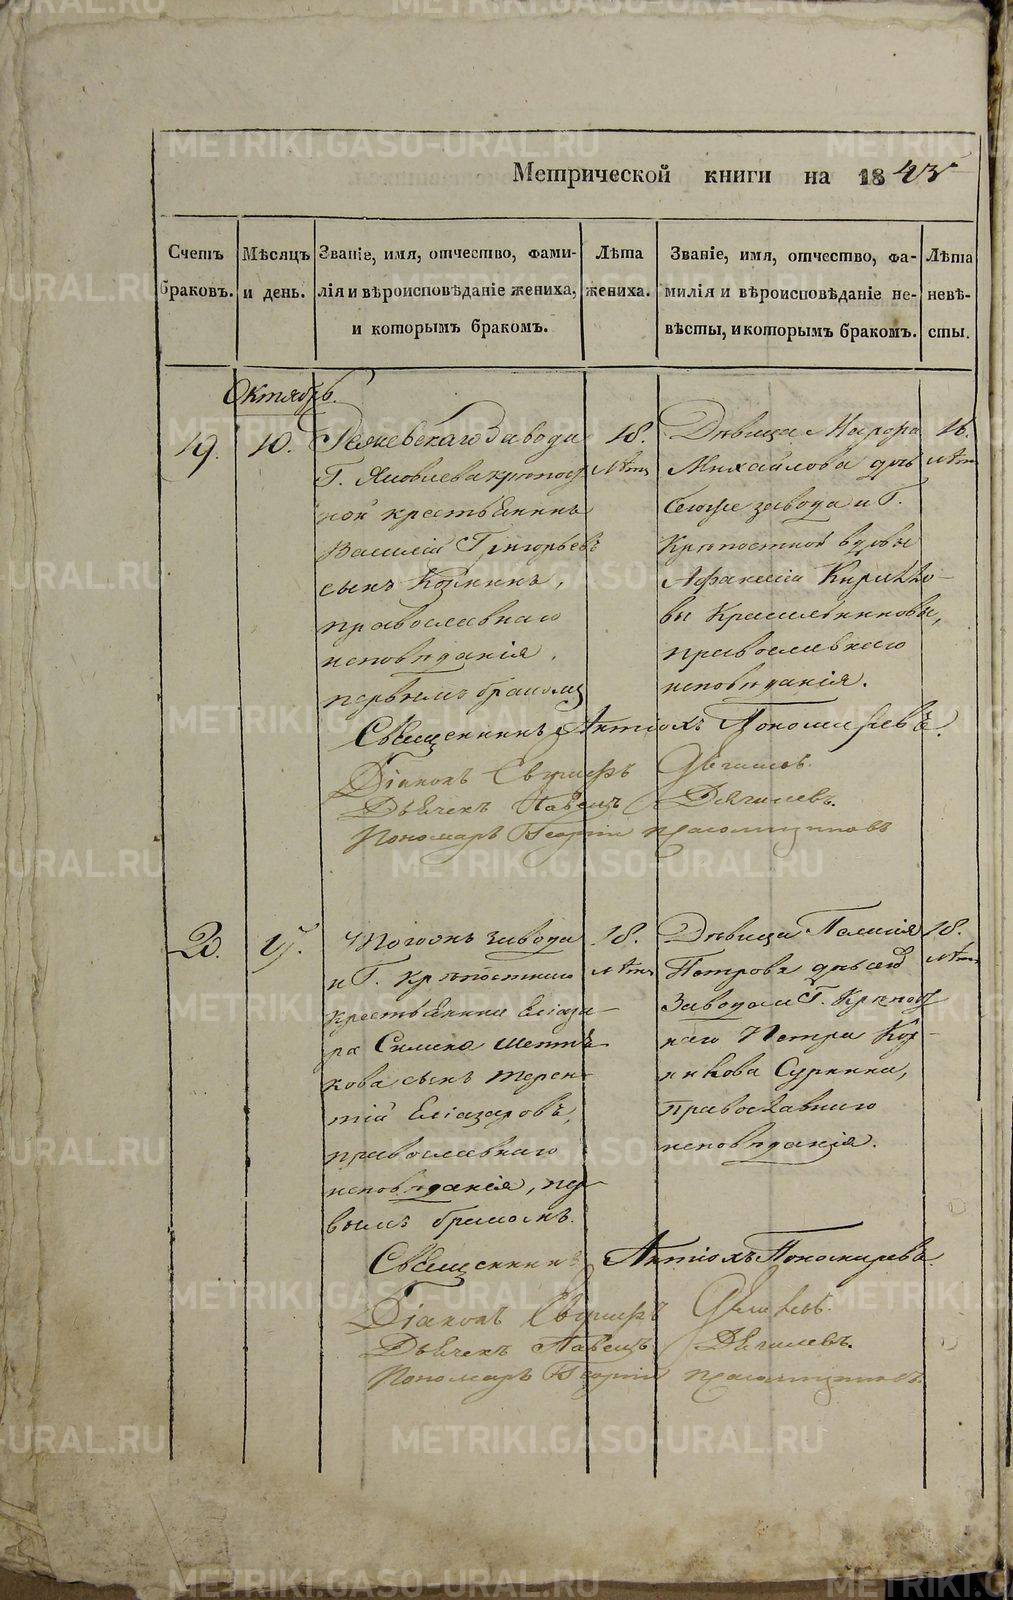 Метрической книги на 1843
Счетъ браковъ.
Мѣсяцъ и день.
Званіе, имя, отчество, фами-
лія и вѣроисповѣданіе жениха,
и которымъ бракомъ.
Лѣта
жениха.
Званіе, имя, отчество, фа-
милія и вѣроисповѣданіе не-
вѣсты, и которымъ бракомъ.
Лѣта
невѣ-
сты.
Октябрь.
19.
10.
Режевскаго Завода
Г. Яковлева крѣпост
ной крестьянинъ
Василій Григорьевъ
сынъ Козминъ,
православнаго
исповѣданія,
первымъ бракомъ
18.
лѣтъ
Дѣвица
Михайлова дчь
Тогоже завода и Г.
Крѣпостной вдовы
Афанасіи Кирилло-
вы Красильниковы,
православнаго
исповѣданія.
16.
лѣтъ
Священникъ Антіохъ Пономаревъ.
Діаконъ
Дьячекъ Павелъ Дягилевъ.
Пономарь Георгій
20.
завода
и Г. Крѣпостнаго
крестьянина Еліаза-
ра
кова сынъ Терен-
тій Еліазаровъ,
православнаго
исповѣданія, пер-
вымъ бракомъ.
18.
лѣтъ
Дѣвица Пелагія
Петрова дчь
Завода и Г. Крѣпост
наго Петра
Сурнина,
православнаго
исповѣданія.
18.
лѣтъ
Священникъ Антіохъ Пономаревъ.
Діаконъ
Дьячекъ Павелъ Дягилевъ.
Пономарь Георгій
METRIKI.GASO-URAL.RU